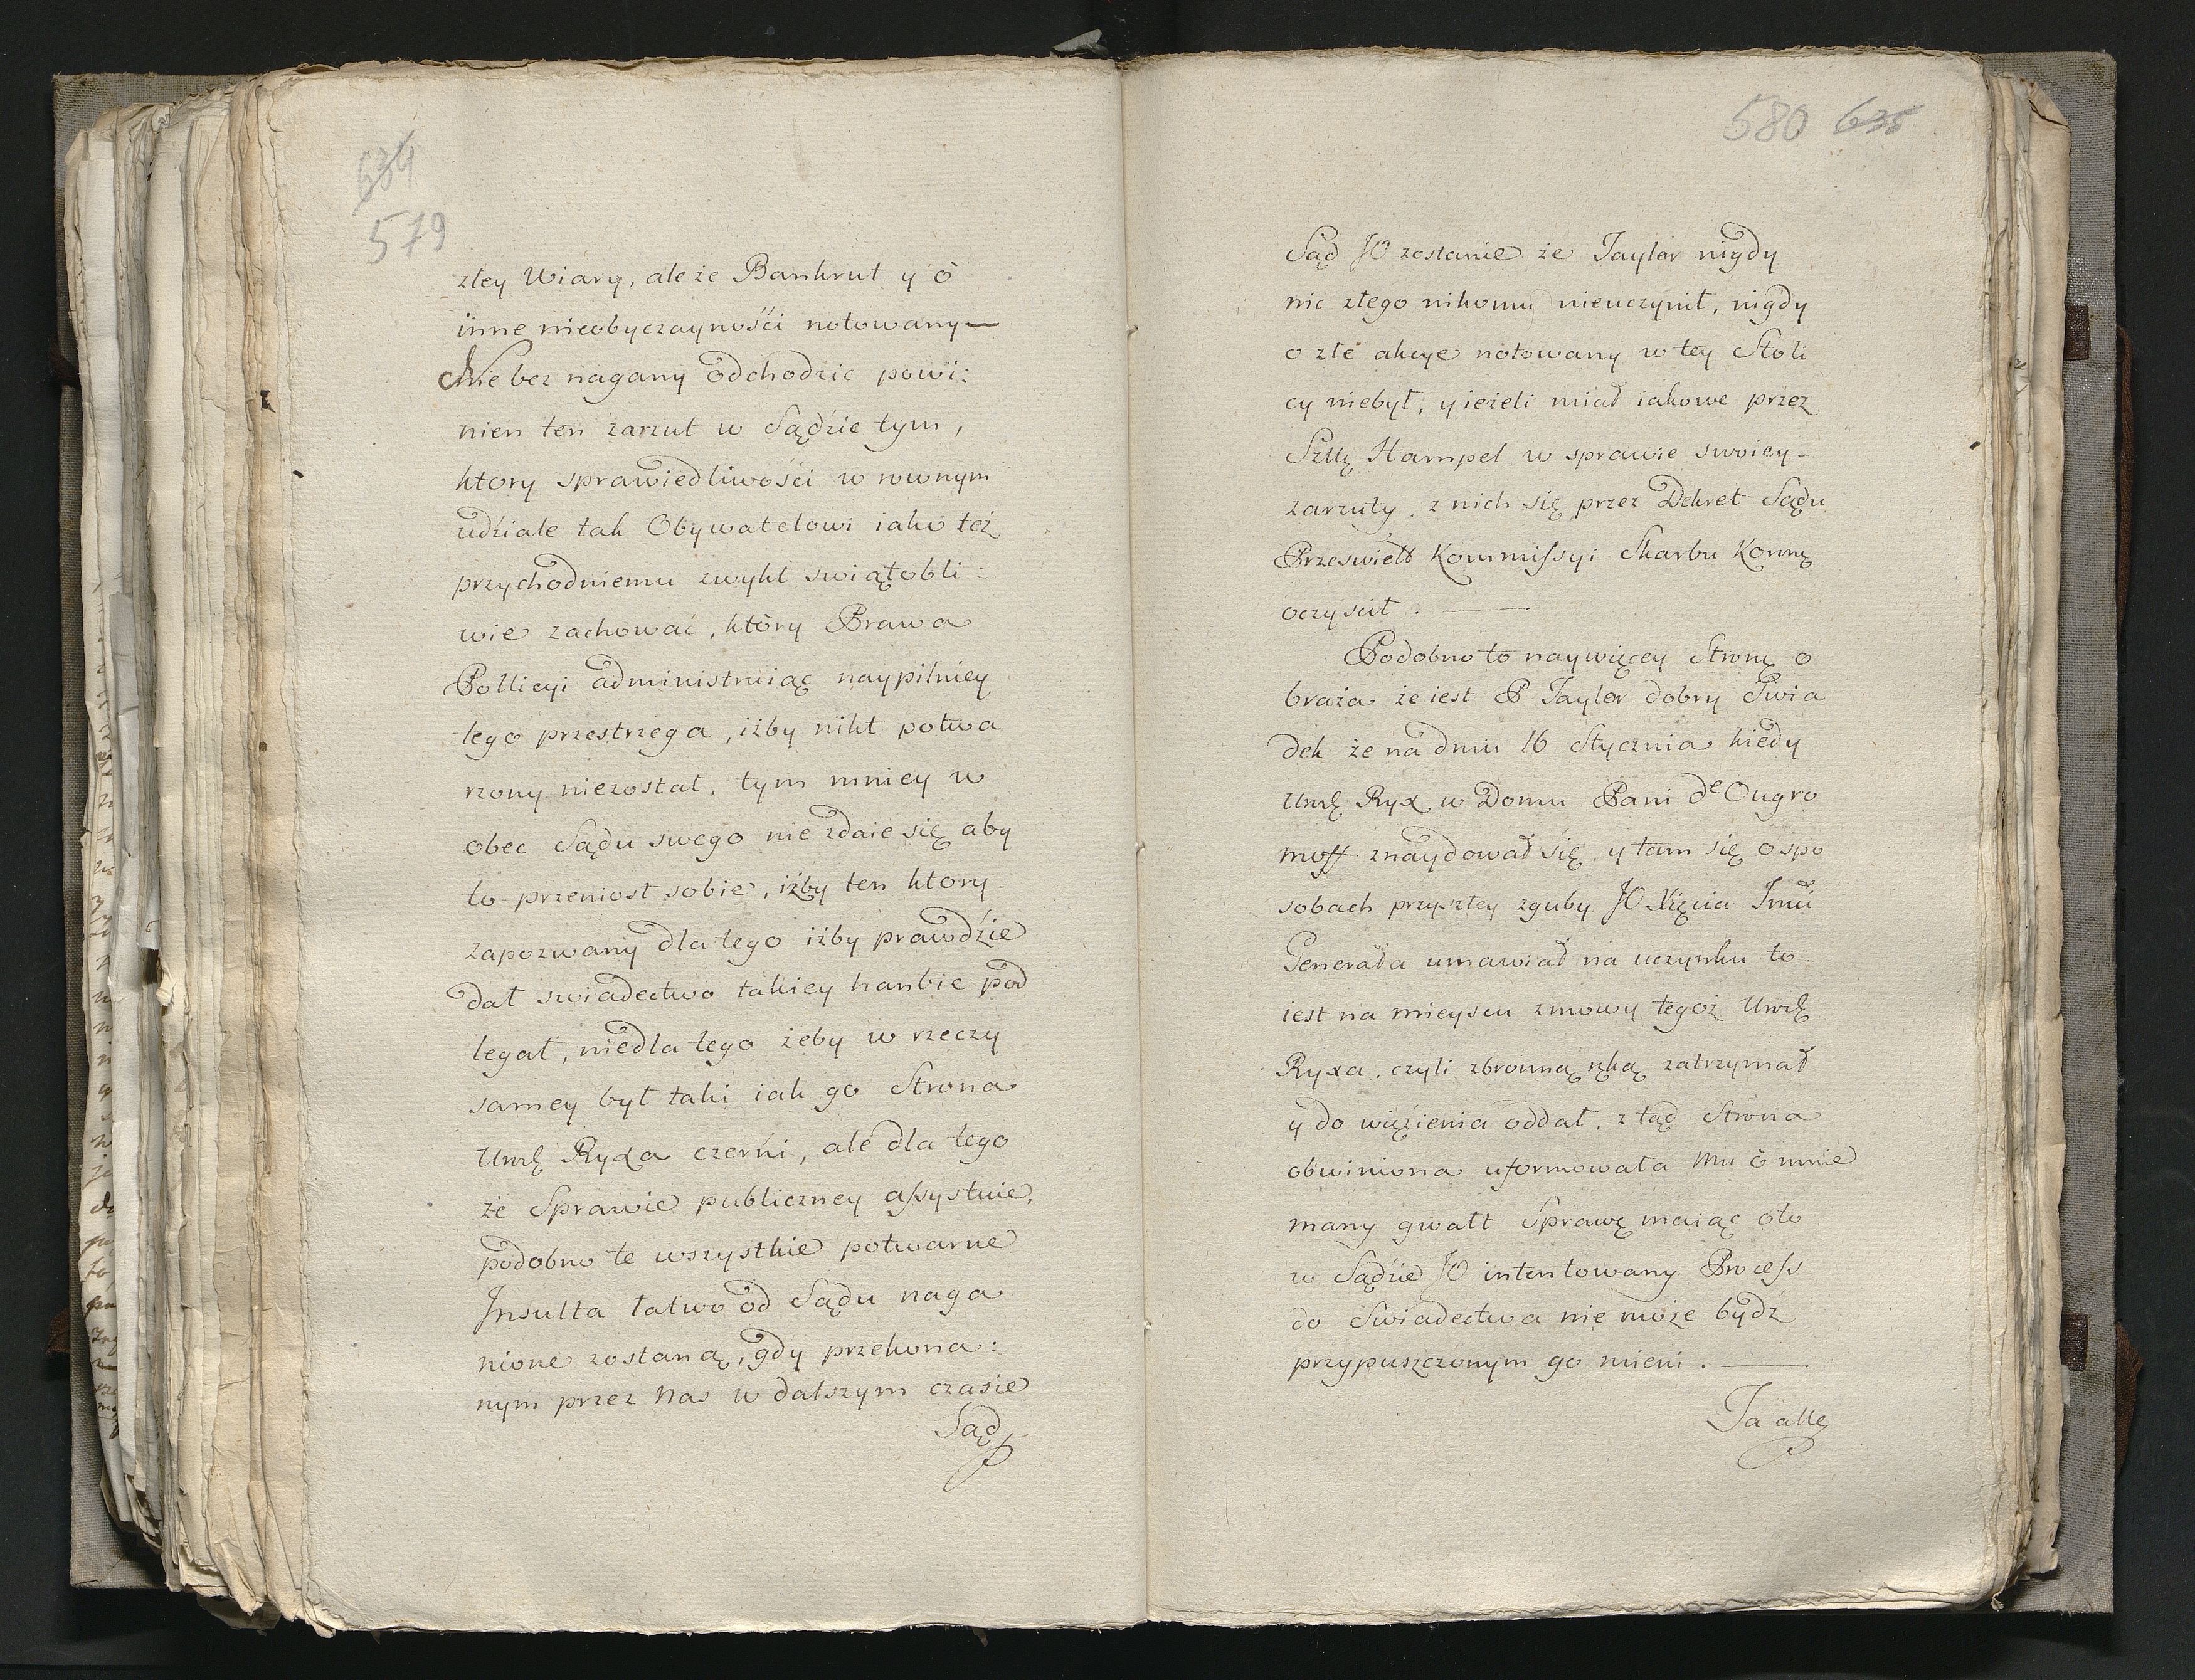 634
579
złey Wiary, ale że Bankrut y o
inne nieobyczayności notowany —
Nie bez nagany odchodzic powi:
nien ten zarzut w Sądzie tym,
ktory sprawiedliwości w rownym
udziale tak Obywatelowi iako też
przychodniemu zwykł swiątobli:
wie zachować, który Prawa
Pollicyi administruiąc naypilniey
tego przestrzega, iżby nikt potwa
rzony niezostał, tym mniey w
obec Sądu swego nie zdaie się aby
to przeniosł sobie, iżby ten ktory
zapozwany dla tego iżby prawdźie
dał swiadectwo takiey hanbie pod
legał, niedla tego żeby w rzeczy
samey był taki iak go Strona
Urodz Ryxa czerni, ale dla tego
że Sprawie publiczney assystuie,
podobno te wszystkie potwarne
Insulta łatwo od Sądu naga
nione zostaną, gdy przekona:
nym przez Nas w dalszym czasie
Sąd
580 635
Sąd JO zostanie że Taylor nigdy
nic złego nikomu nieuczynił, nigdy
o złe akcye notowany w tey Stoli
cy niebył, y ieżeli miał iakowe przez
Szltę Hampel w sprawie swoiey
zarzuty, z nich się przez Dekret Sądu
Przeswiett Kommissyi Skarbu Konnę
oczyścił. —
Podobno to naywięcey Stronę o
braża że iest P Taylor dobry Swia
dek że na dniu 16 Stycznia kiedy
Urodz Ryx w Domu Pani de Ougro
moff znaydował się, y tam się o spo
sobach przyszłey zguby JO Xięcia Jmci
Generała umawiał na uczynku to
iest na mieyscu zmowy tegoż Urodz
Ryxa, czyli zbronną ręką zatrzymał
y do więzienia oddał, z tąd Strona
obwiniona uformowała mu o mnie
many gwałt Sprawę maiąc oto
w Sądzie JO intentowany Process
do Swiadectwa nie może bydź
przypuszczonym go mieni. —
Ja allę